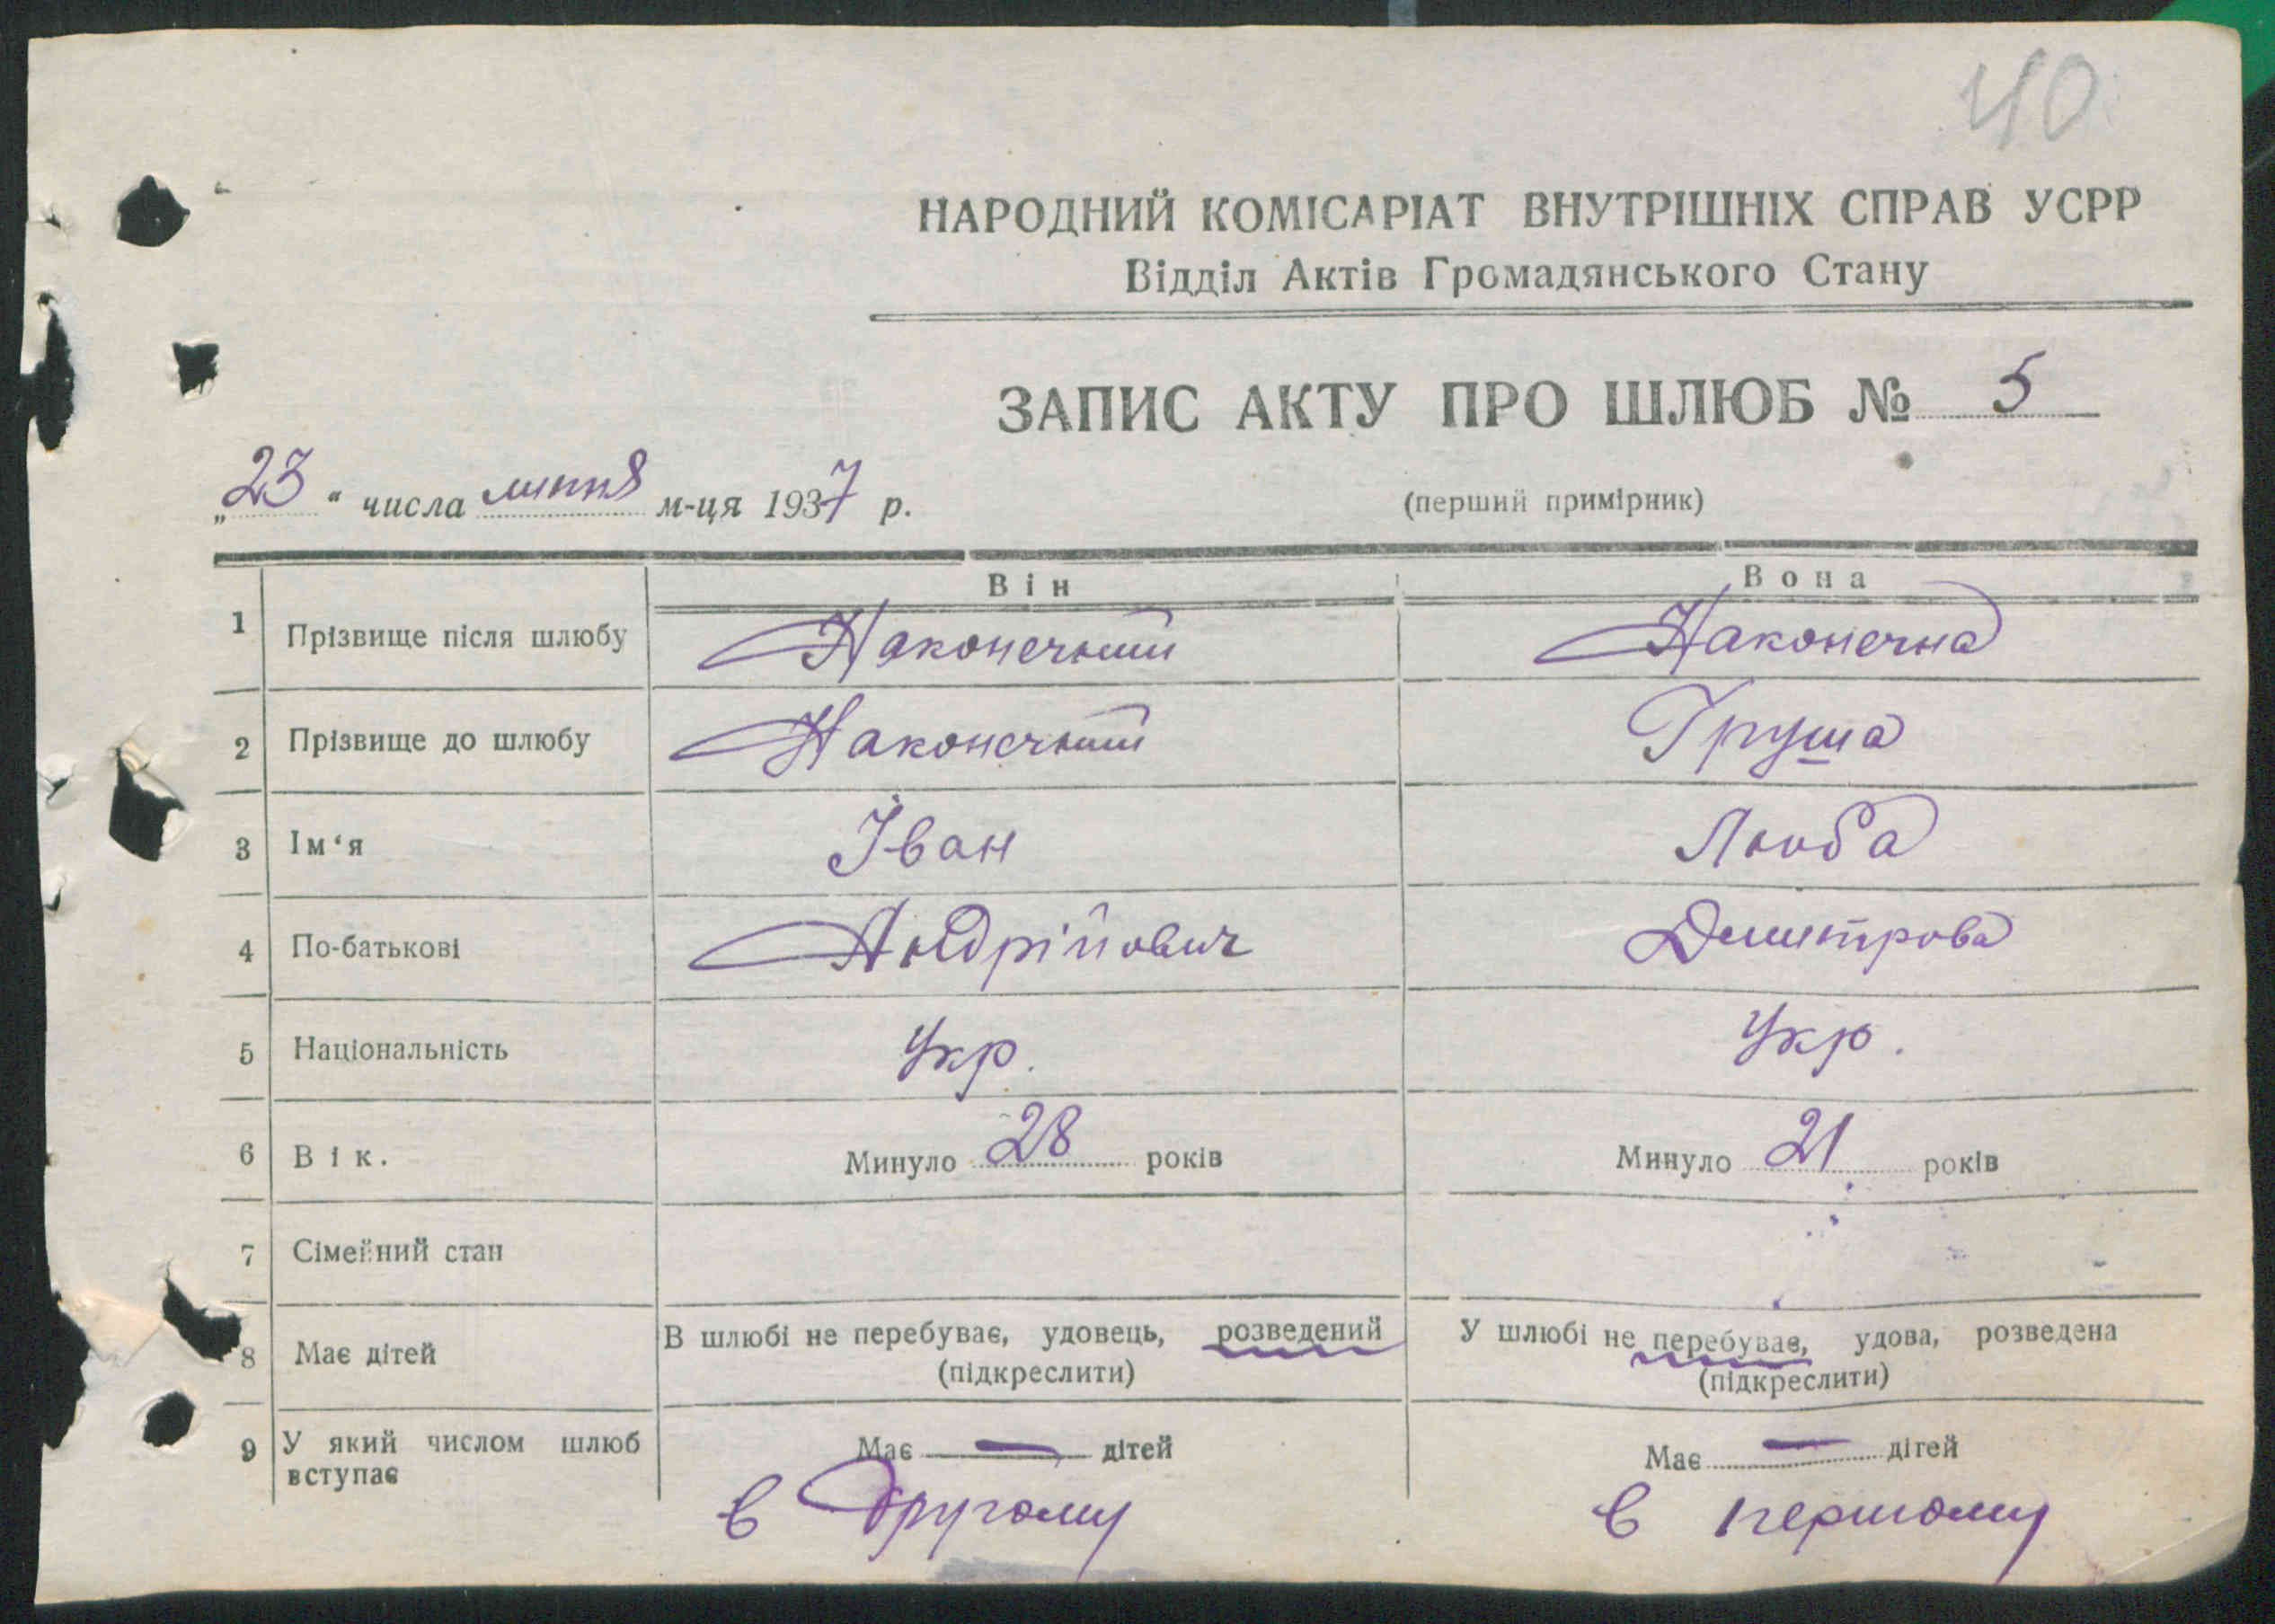 40
НАРОДНИЙ КОМІСАРІАТ ВНУТРІШНІХ СПРАВ УСРР
Відділ Актів Громадянського Стану
ЗАПИС АКТУ ПРО ШЛЮБ № 5
„23" числа липня м-ця 1937 р.
(перший примірник)
Він Вона
1 Прізвище після шлюбу Наконечний Наконечна
2 Прізвище до шлюбу Наконечний Груша
3 Ім'я Іван Люба
4 По-батькові Андрійович Димитрова
5 Національність Укр. Укр.
6 Вік. Минуло 28 років Минуло 21 років
7 Сімейний стан
8 Має дітей В шлюбі не перебуває, удовець, розведений У шлюбі не перебуває, удова, розведена
(підкреслити) (підкреслити)
9 У який числом шлюб Має — дітей Має — дітей
вступає
в другому в першому